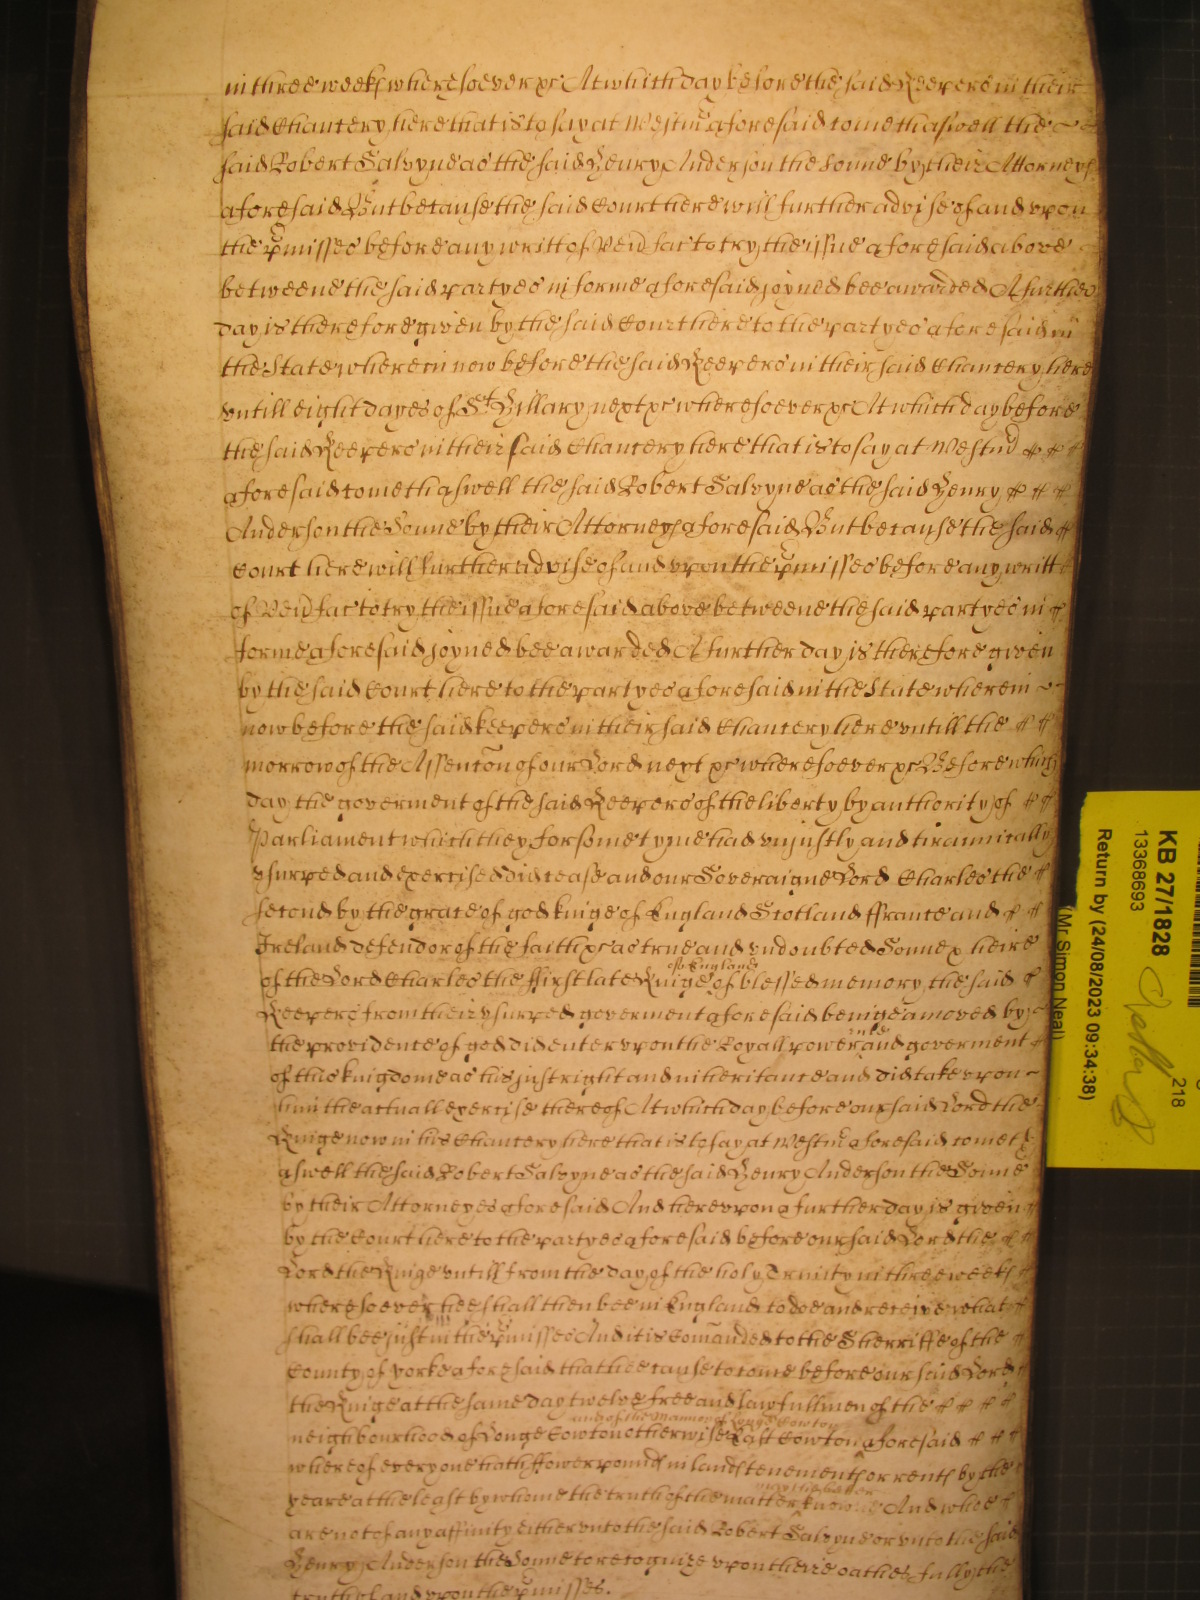 in three weeks wheresoever &c At which day before the said Keepers in their
said Chancery here that is to say at Westm aforesaid cometh aswell the
said Robert Salvyne as the said Henry Anderson the Sonne by their Attorneys
aforesaid But because the said Court here will further advise of and vpon
the pmisses before any writt of Venr facr to try the issue aforesaid above
betweene the said partyes in forme aforesaid joyned bee awarded A further
day is therefore given by the said Court here to the partyes aforesaid in
the State wherein now before the said Keepers in their said Chancery here
vntill eight dayes of St Hillary next &c wheresoever &c At which day before
the said Keepers in their said Chancery here that is to say at Westm
aforesaid cometh aswell the said Robert Salvyne as the said Henry
Anderson the Sonne by their Attorneys aforesaid But because the said
Court here will further advise of and vpon the pmisses before any writt
of Venr facr to try the issue aforesaid above betweene the said partyes in
forme aforesaid joyned bee awarded A further day is therefore given
by the said Court here to the partyes aforesaid in the State wherein
now before the said keepers in their said Chancery here vntill the
morrow of the Assencon of our Lord next &c wheresoever &c Before which
day the goverment of the said Keepers of the liberty by authority of
Parliament which they for some tyme had vnjustly and tirannically
vsurped and exercised did cease and our Soveraigne Lord Charles the
second by the grace of god kinge of England Scotland ffrance and
Ireland defendor of the faith &c as true and vndoubted Sonne & heire
of the Lord Charles the ffirst late Kinge of England of blessed memory the said
Keepers from their vsurped goverment aforesaid beinge amoved by
the providence of god did enter vpon the Royall power rule and goverment
of this kingdome as his just right and inheritance and did take vpon
him the actuall exercise thereof At which day before our said Lord the
Kinge now in his Chancery here that is to say at Westm aforesaid cometh
aswell the said Robert Salvyne as the said Henry Anderson the Sonne
by their Attorneyes aforesaid And herevpon a further day is given
by the Court here to the partyes aforesaid before our said Lord the
Lord the Kinge vntill from the day of the holy Trinity in three weeks
wheresoever hee shall then bee in England to doe and receive what
shall bee just in the pmisses And it is Comanded to the Sherriffe of the
County of yorke aforesaid that hee cause to come before our said Lord
the Kinge at the same day twelve free and lawfull men of the
and of the Mannor of Longe Cowton
neighbourhood of Longe Cowton otherwise East Cowton aforesaid
whereof every one hath ffower pounds in lands tenements or rents by the
yeare at the least by whome the truth of the matter may the better know And who
are not of any affinity either vnto the said Robert Salvyne or vnto the said
Henry Anderson the Sonne to recognize vpon theire oathes fully the
truth of and vpon the pmisses.
KB 27/1828
13368693
218
Return by (24/08/2023 09:34:38)
(Mr Simon Neal)